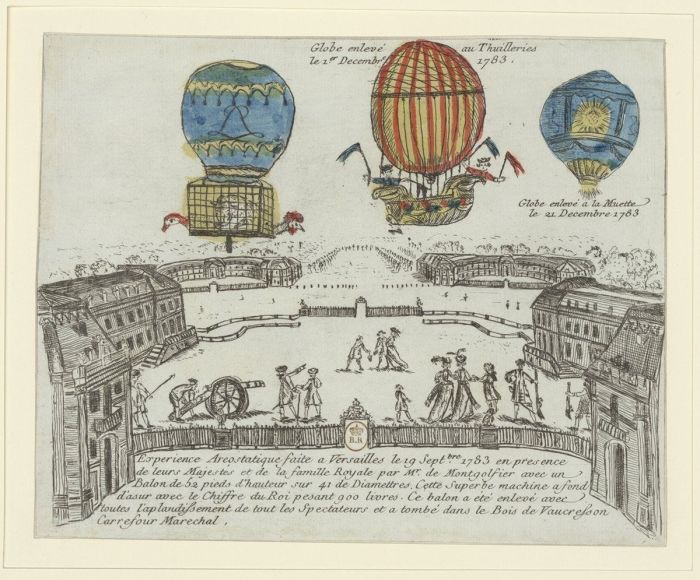 Globe enlevé au Thuilleries
le 1er Decembre 1783.
Globe enlevé a la Muette
le 21 Decembre 1783
B.R
Experience Areostatique faite a Versailles le 19 Sept.bre 1783 en presence
de leurs Majestés et de la famille Royale par Mr. de Montgolfier avec un
Balon de 52 pieds d'hauteur sur 41 de Diamettres. Cette Superbe machine a fond
d'asur avec le Chiffre du Roi pesant 900 livres. Ce balon a eté enlevé avec
toutes l'aplandissement de tout les Spectateurs et a tombé dans le Bois de Vaucresson
Carrefour Marechal.